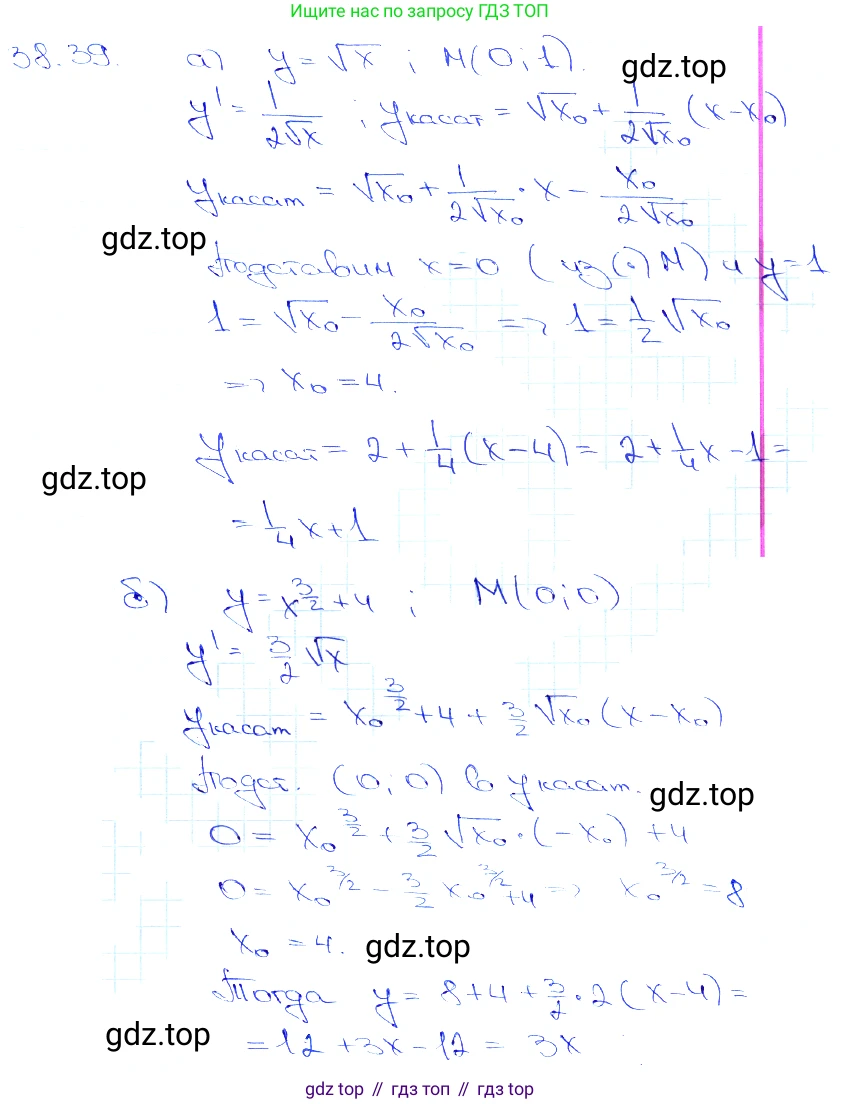 Ищите нас по запросу ГДЗ ТОП
38.39. а) y = √x ; M(0; 1).
gdz.top
y' = 1/(2√x) ; y касат = √x₀ + 1/(2√x₀) (x - x₀)
y касат = √x₀ + 1/(2√x₀) · x - x₀/(2√x₀)
gdz.top
Подставим x = 0 (из (·) M) и y = 1
1 = √x₀ - x₀/(2√x₀) => 1 = 1/2 √x₀
=> x₀ = 4.
y касат = 2 + 1/4 (x - 4) = 2 + 1/4 x - 1 =
gdz.top
= 1/4 x + 1
б) y = x^(3/2) + 4 ; M(0; 0)
y' = 3/2 √x
y касат = x₀^(3/2) + 4 + 3/2 √x₀ (x - x₀)
Подст. (0; 0) в y касат.
gdz.top
0 = x₀^(3/2) + 3/2 √x₀ · (-x₀) + 4
0 = x₀^(3/2) - 3/2 x₀^(3/2) + 4 => x₀^(3/2) = 8
x₀ = 4.
gdz.top
Тогда y = 8 + 4 + 3/2 · 2 (x - 4) =
gdz.top
= 12 + 3x - 12 = 3x
gdz top // гдз топ // gdz top